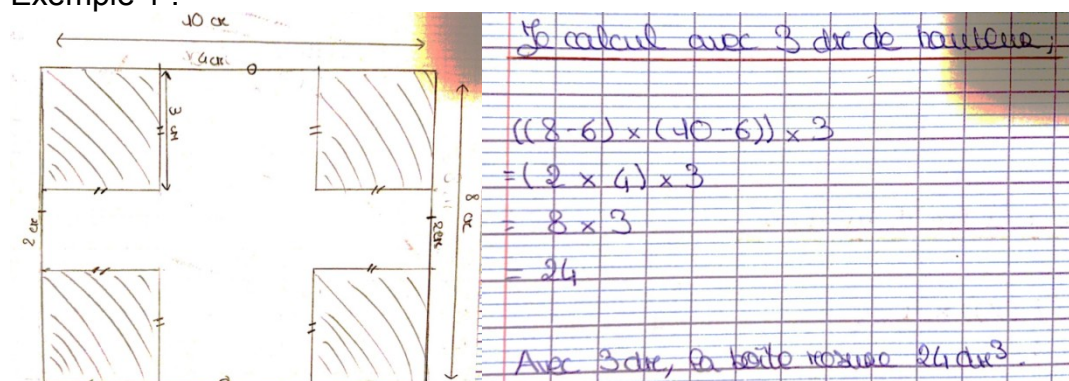 Exemple 1 :
10 cm
4cm
3 cm
2 cm
2cm
8 cm
Je calcul avec 3 dm de hauteur;
((8-6) × (10-6)) × 3
=(2 × 4) × 3
= 8 × 3
= 24
Avec 3 dm, la boîte mesure 24 dm³.